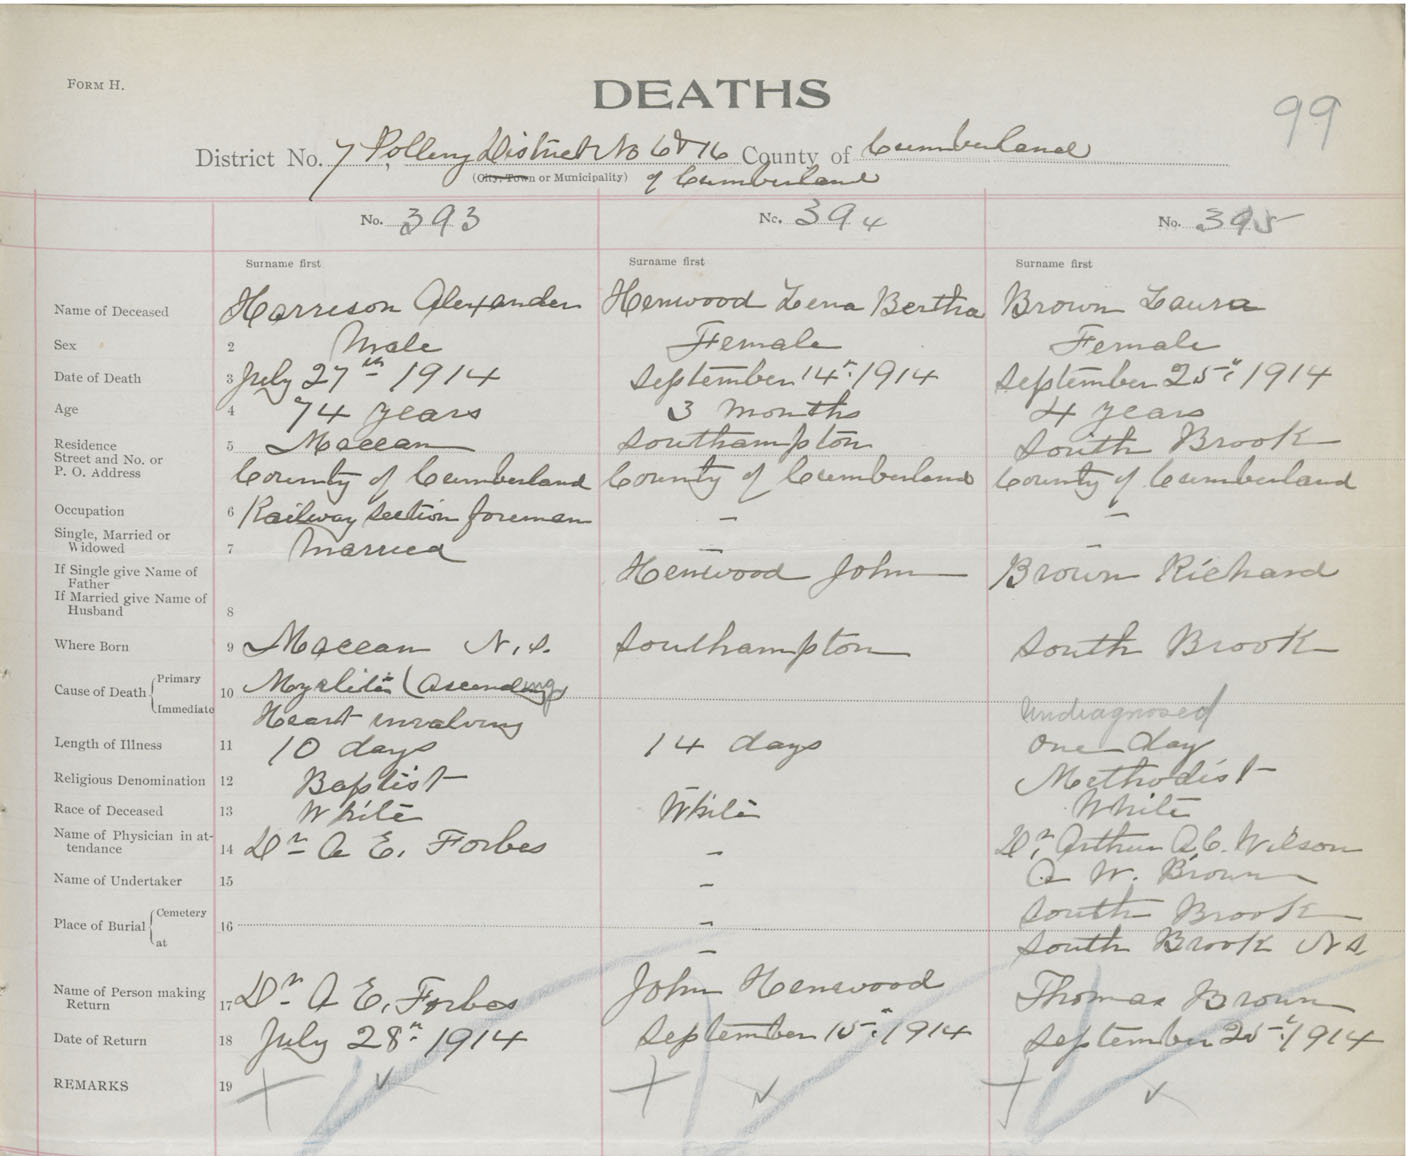 FORM H.
DEATHS
99
District No. 7 Polling District No 6 & 16 County of Cumberland
(City, Town or Municipality) of Cumberland
No. 393 No. 394 No. 395
Surname first Surname first Surname first
Name of Deceased Harrison Alexander Henwood Lena Bertha Brown Laura
Sex 2 Male Female Female
Date of Death 3 July 27th 1914 September 14th 1914 September 25th 1914
Age 4 74 years 3 months 4 years
Residence 5 Maccan Southampton South Brook
Street and No. or
P. O. Address County of Cumberland County of Cumberland County of Cumberland
Occupation 6 Railway Section foreman – –
Single, Married or
Widowed 7 Married – –
If Single give Name of
Father Henwood John Brown Richard
If Married give Name of
Husband 8
Where Born 9 Maccan N.S. Southampton South Brook
Cause of Death Primary 10 Myelitis (Ascending)
Immediate Heart involving Undiagnosed
Length of Illness 11 10 days 14 days One day
Religious Denomination 12 Baptist Methodist
Race of Deceased 13 White White White
Name of Physician in at-
tendance 14 Dr A E. Forbes – Dr. Arthur A C. Wilson
Name of Undertaker 15 – A W. Brown
Place of Burial Cemetery 16 – South Brook
at – South Brook N S
Name of Person making
Return 17 Dr A E. Forbes John Henwood Thomas Brown
Date of Return 18 July 28th 1914 September 15th 1914 September 25th 1914
REMARKS 19